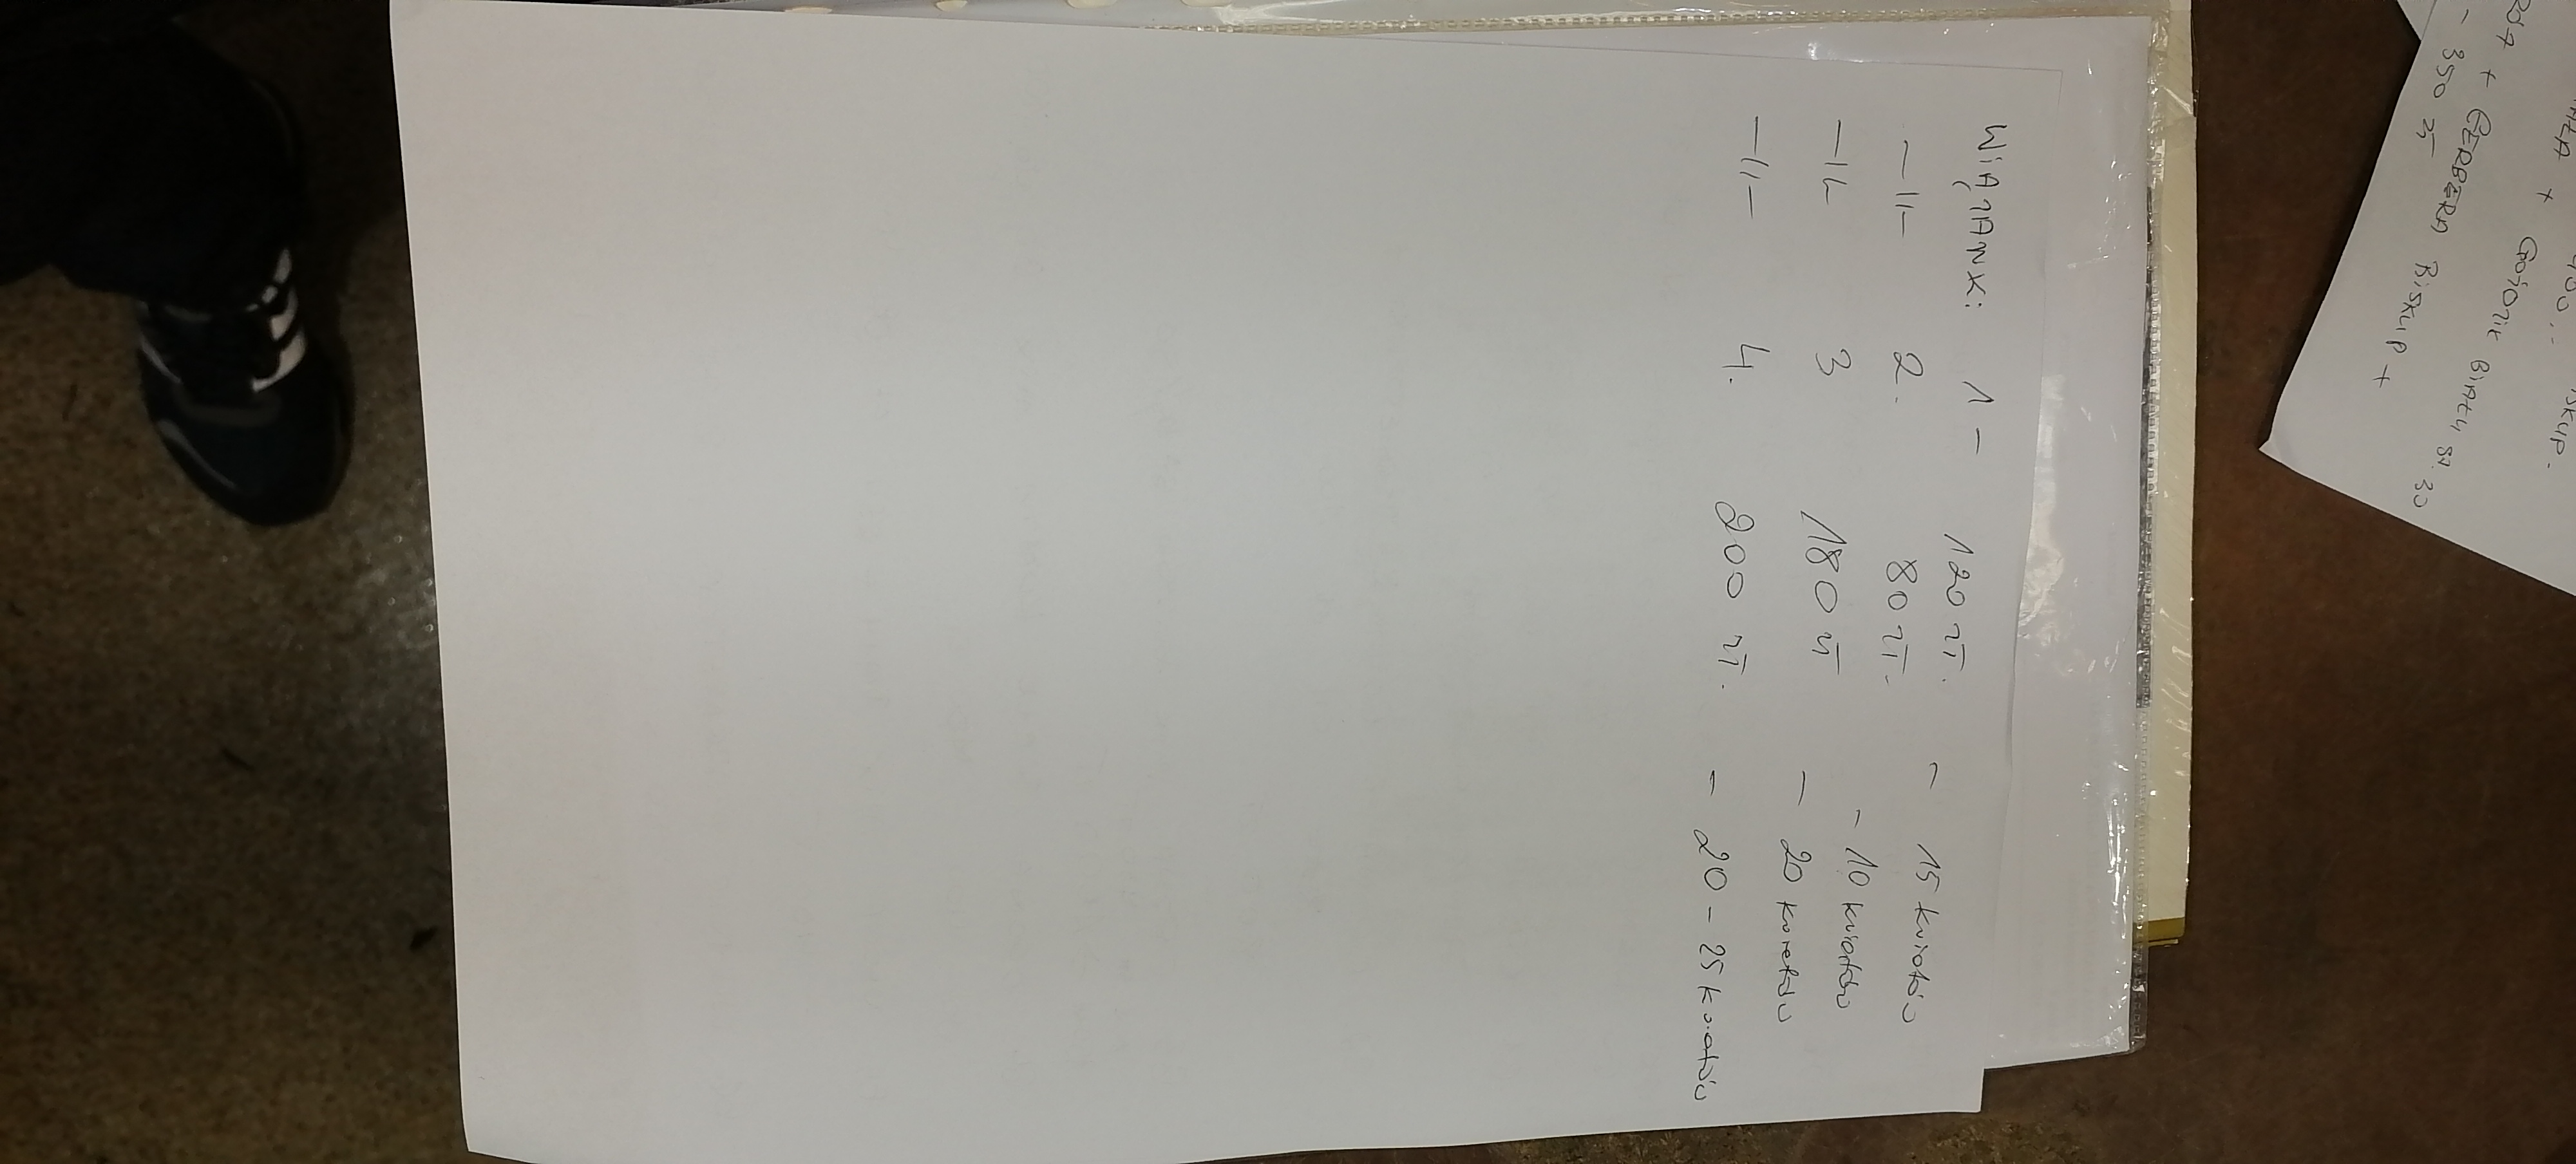 400,-
+ GOŹDZIK BIAŁY 87. 30
+ GERBERA BISKUP +
- 350 zł
WIĄZANK: 1 - 120 zł. - 15 kwiatów
-||- 2. 80 zł. - 10 kwiatów
-||- 3 180 zł - 20 kwiatów
-||- 4. 200 zł. - 20 - 25 kwiatów